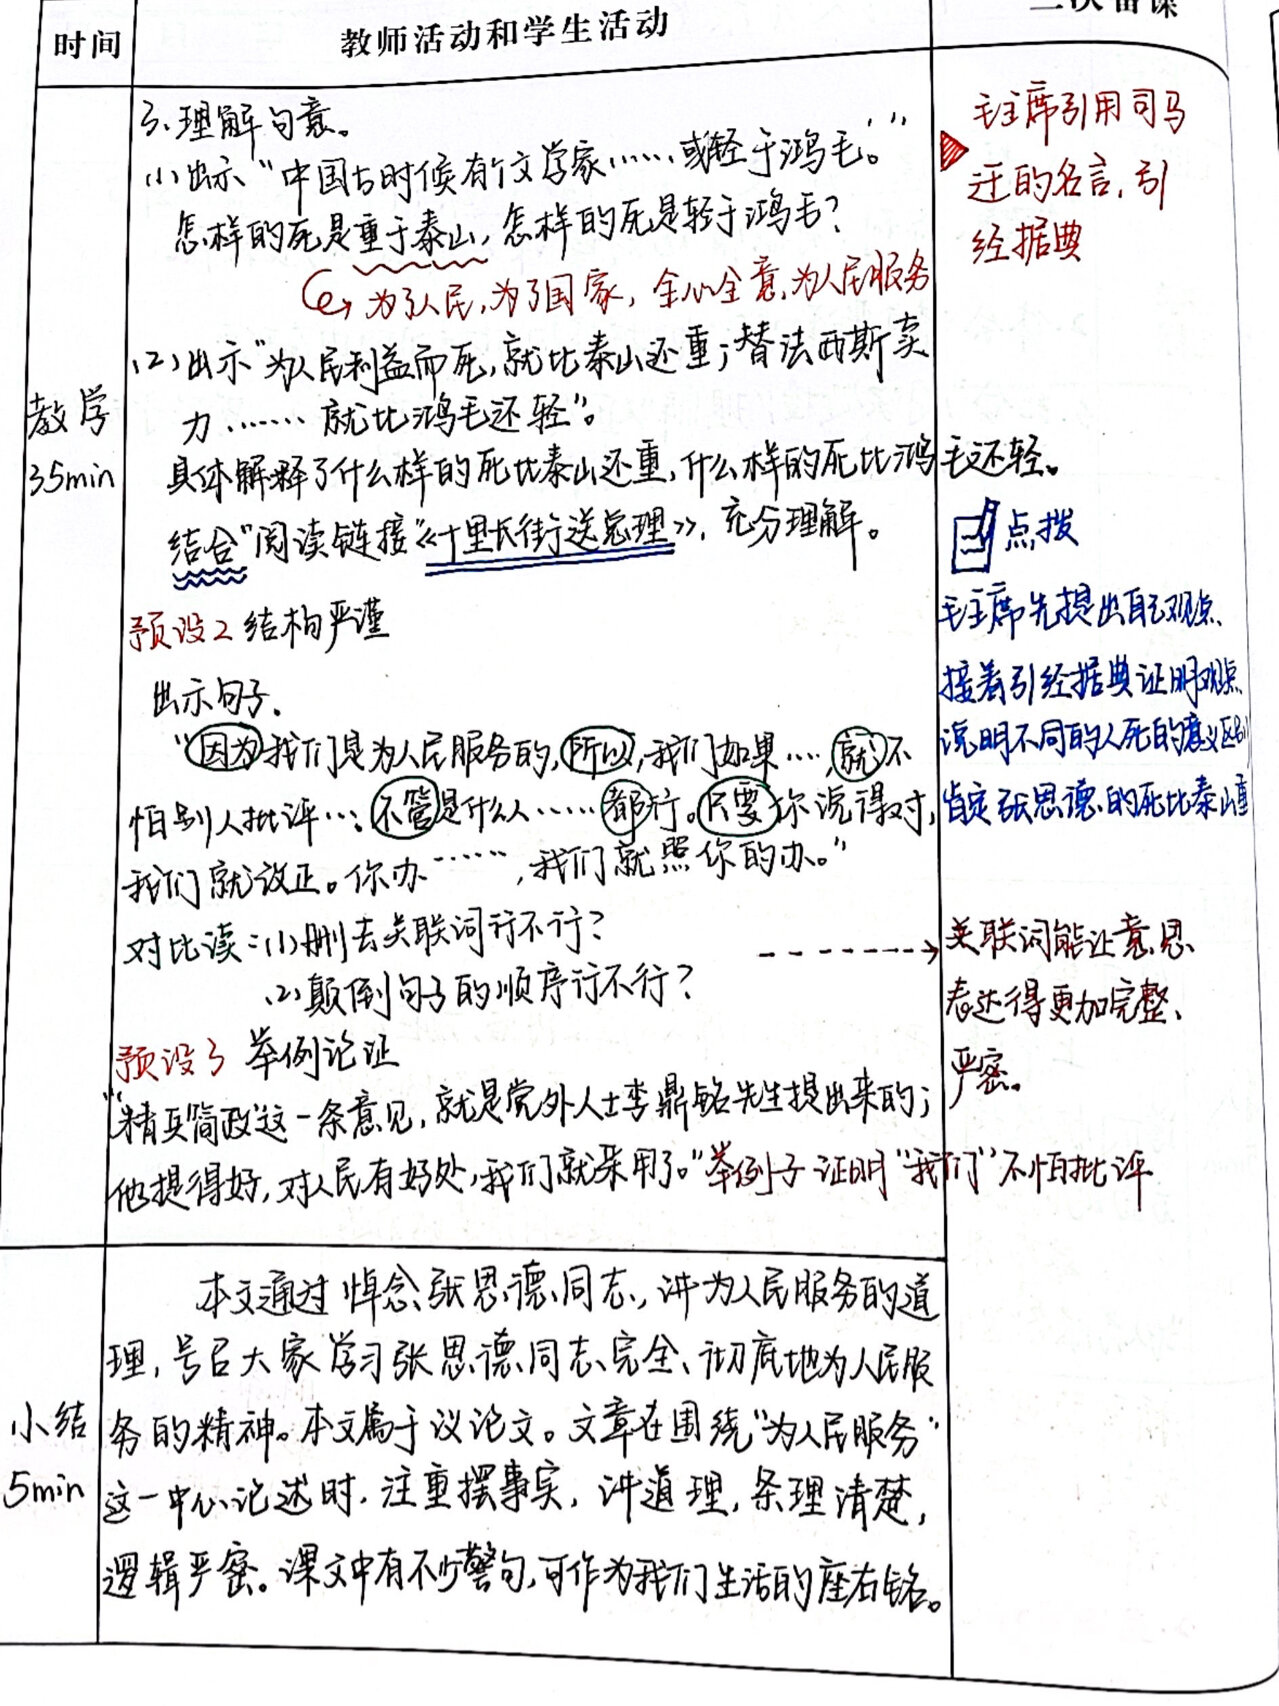 时间
教师活动和学生活动
二次备课
教学
35min
3、理解句意。
(1)出示“中国古时候有个文学家……或轻于鸿毛。’”
怎样的死是重于泰山,怎样的死是轻于鸿毛?
为了人民,为了国家,全心全意为人民服务
(2)出示“为人民利益而死,就比泰山还重;替法西斯卖
力……就比鸿毛还轻”。
具体解释了什么样的死比泰山还重,什么样的死比鸿毛还轻。
结合“阅读链接”《十里长街送总理》,充分理解。
预设2 结构严谨
出示句子.
“因为我们是为人民服务的,所以,我们如果…,就不
怕别人批评…。不管是什么人……都行。只要你说得对,
我们就改正。你办……,我们就照你的办。”
对比读:(1)删去关联词行不行?
(2)颠倒句子的顺序行不行?
预设3 举例论证
“‘精兵简政’这一条意见,就是党外人士李鼎铭先生提出来的;
他提得好,对人民有好处,我们就采用了。”举例子证明“我们”不怕批评
毛主席引用司马
迁的名言,引
经据典
点拨
毛主席先提出自己观点
接着引经据典证明观点
说明不同的人死的意义区别
肯定张思德的死比泰山重
关联词能让意思
表达得更加完整、
严密。
小结
5min
本文通过悼念张思德同志,讲为人民服务的道
理,号召大家学习张思德同志完全、彻底地为人民服
务的精神。本文属于议论文。文章在围绕“为人民服务”
这一中心论述时,注重摆事实,讲道理,条理清楚,
逻辑严密。课文中有不少警句,可作为我们生活的座右铭。